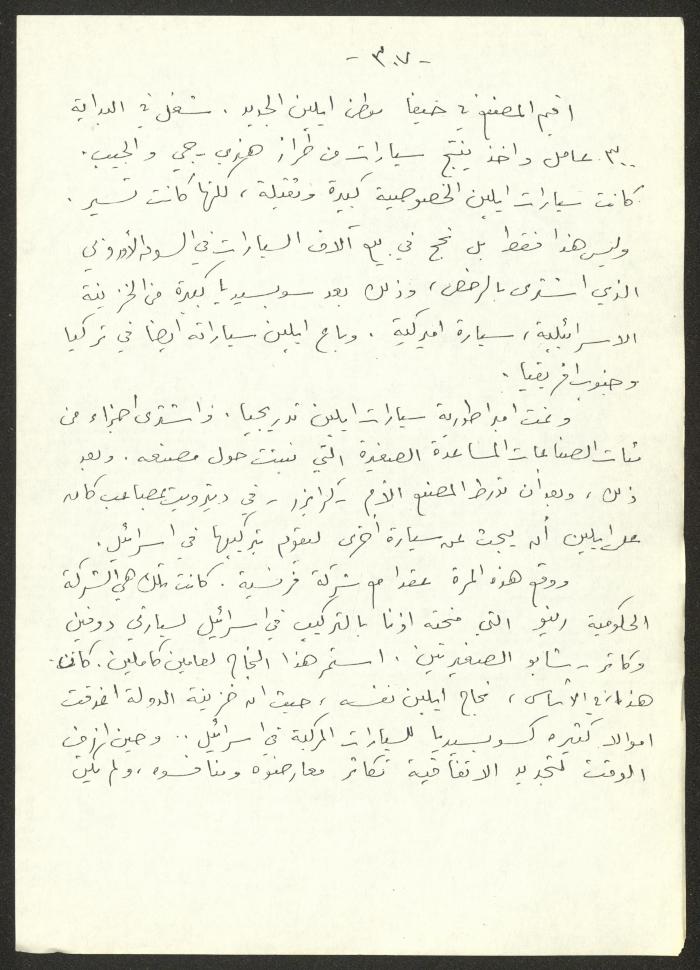 - ٣٠٧ -
اقيم المصنع في حيفا موطن ايلين الجديد . شغل في البداية
٣٠٠ عامل واخذ ينتج سيارات من طراز هنري - جي والجيب .
كانت سيارات ايلين الخصوصية كبيرة وثقيلة ، لكنها كانت تسير .
وليس هذا فقط بل نجح في بيع آلاف السيارات في السوق الأوروبي
الذي اشترى بالرخص ، وذلك بعد سوبسيديا كبيرة من الخزينة
الاسرائيلية ، سيارة اميركية . وباع ايلين سياراته ايضا في تركيا
وجنوب افريقيا .
ونمت امبراطورية سيارات ايلين تدريجيا . فاشترى اجزاء من
مئات الصناعات المساعدة الصغيرة التي نبتت حول مصنعه . وبعد
ذلك ، وبعد أن تورط المصنع الأم - كرايزر - في ديترويت بمصاعب كان
على ايلين أن يبحث عن سيارة أخرى ليقوم بتركيبها في اسرائيل .
ووقع هذه المرة عقدا مع شركة فرنسية . كانت تلك هي الشركة
الحكومية رنو التي منحته اذنا بالتركيب في اسرائيل لسيارتي دوفين
وكاتر - شابو الصغيرتين . استمر هذا النجاح لعامين كاملين . كان
هذا ، في الاساس ، نجاح ايلين نفسه ، حيث ان خزينة الدولة اغرقت
اموالا كثيره كسوبسيديا للسيارات المركبة في اسرائيل .. وحين ازف
الوقت لتجديد الاتفاقية تكاثر معارضوه ومنافسوه ، ولم يكن